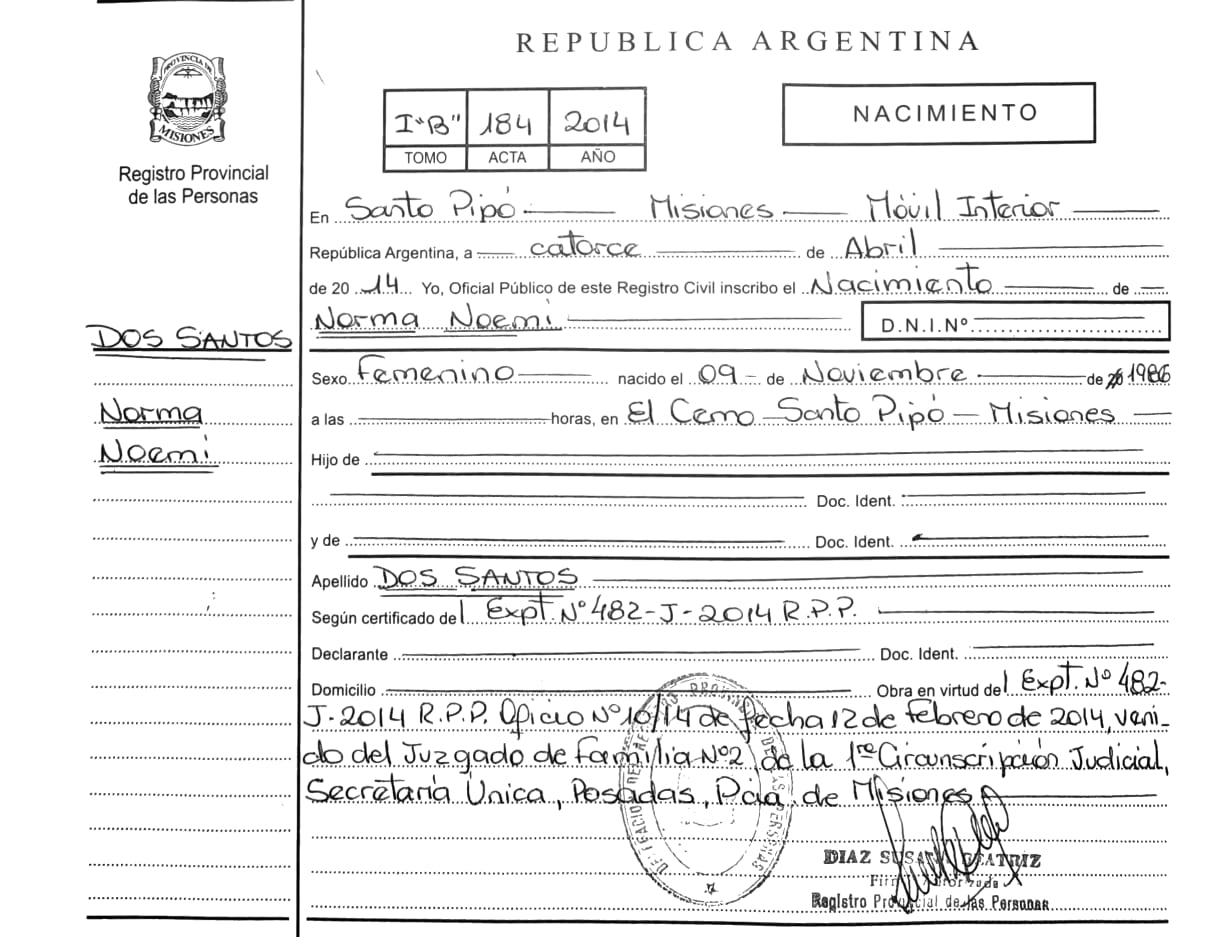 REPUBLICA ARGENTINA
PROVINCIA DE
MISIONES
Registro Provincial
de las Personas
I "B" 184 2014
TOMO ACTA AÑO
NACIMIENTO
En Santo Pipó Misiones Móvil Interior
República Argentina, a catorce de Abril
de 20 14 Yo, Oficial Público de este Registro Civil inscribo el Nacimiento de
Norma Noemí D.N.I.Nº
DOS SANTOS
Norma
Noemí
Sexo Femenino nacido el 09 de Noviembre de 1986
a las horas, en El Cerro Santo Pipó - Misiones
Hijo de
Doc. Ident.
y de Doc. Ident.
Apellido DOS SANTOS
Según certificado del Expt. Nº 482-J-2014 R.P.P.
Declarante Doc. Ident.
Domicilio Obra en virtud del Expt. Nº 482-
J-2014 R.P.P. Oficio Nº 10/14 de fecha 12 de febrero de 2014, veni-
do del Juzgado de Familia Nº2 de la 1ra Circunscripción Judicial,
Secretaría Única, Posadas, Pcia. de Misiones
DIAZ SUSANA BEATRIZ
Registro Provincial de las Personas